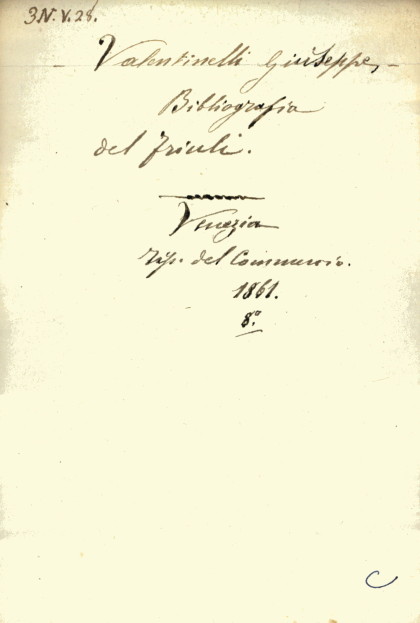 3.N.V.28.
Valentinelli Giuseppe,
Bibliografia
del Friuli.
Venezia
Tip. del Commercio.
1861.
8.º
C